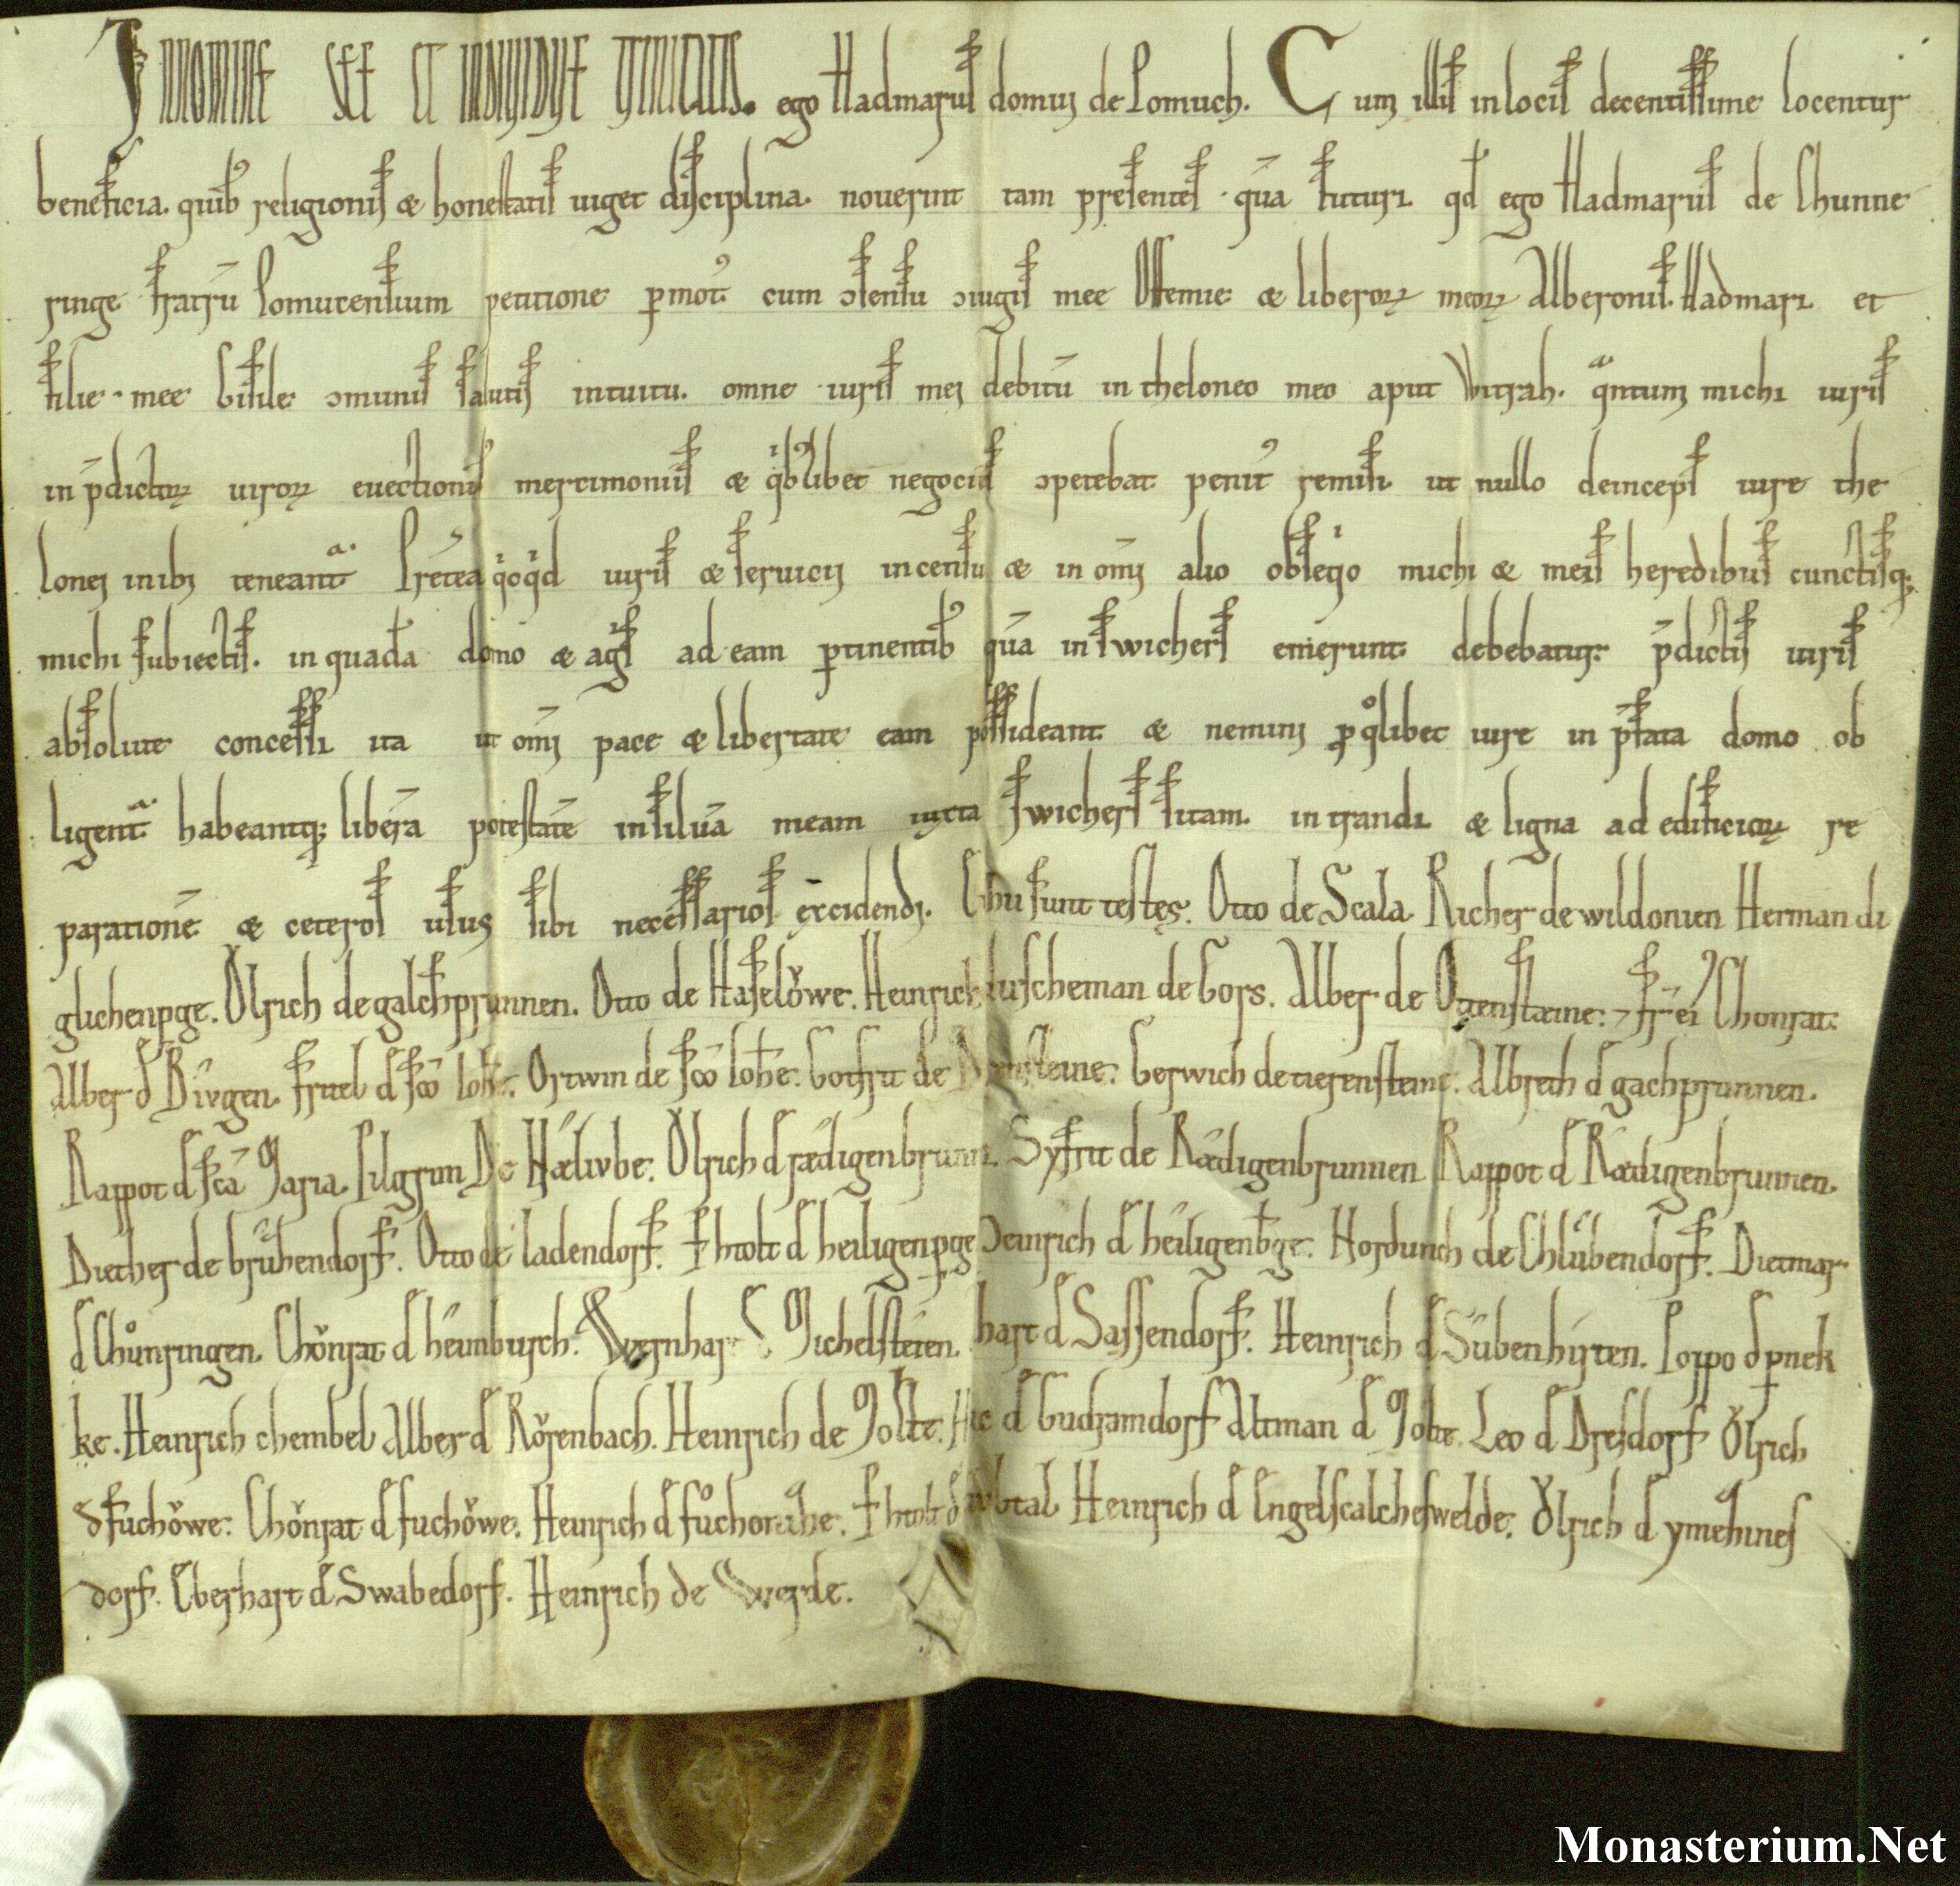 IN NOMINE SCE ET INDIVIDVE TRINITATIS. ego Hadmarus domini de Pomuch. Cum illis in locis decentissime locentur
beneficia. quib' religionis & honestatis uiget disciplina. nouerint tam presentes quā futuri qđ ego Hadmarus de Chunne
ringe fratrū Pomucensium petitione ꝑmot' cum ↄsensu ↄiugis mee Offemie & liberoꝝ meoꝝ Alberonis. Hadmari et
filie mee Gisile ↄmunis salutis intuitu. omne iuris mei debitū in theloneo meo aput Witrah. qͣntum michi iuris
in p̄dictoꝝ uiroꝝ euectionis mercimoniis & qͥb'libet negociis ↄpetebat penit' remisi ut nullo deinceps iure the
lonei inibi teneantͬ. Pret̄ea qͥcqͥd iuris & seruicij in censu & in om̄i alio obseqͥo michi & meis heredibus cunctisq;
michi subiectis. in quadā domo & agͥs ad eam ꝑtinentib' quā in swichers emerunt debebatur p̄dictis uiris
absolute concessi ita ut om̄i pace & libertate eam possideant & nemini ꝓ qͦlibet iure in p̄fata domo ob
ligentͬ habeantq; liberā potestatē in siluā meam iuxta swichers sitam intrandi & ligna ad edificioꝝ re
parationē & ceteros usus sibi necessarios excidendi. Huius sunt testes. Otto de Scala. Richer de wildonien Herman di
glichenꝑge. Ǒlrich de galchprunnen. Otto de Haselǒwe. Heinrich luscheman de Gors. Alber de Otenstæine. 7 fr̄ ei' Chonrat.
Alber đ Birgen. fritel đ scō loħe. Ortwin de scō loħe. Gotfrit de steine. Gerwich de tiefensteine. Albreth đ gachprunnen.
Rappot đ scā Maria. Pilgrim De Hæliube. Ǒlrich đ rædigenbrunn. Syfrit de Rædigenbrunnen Rappot đ Rædigenbrunnen.
Diether de brůhendorf. Otto de ladendorf. heiligenꝑge Heinrich đ heiligenbͤge. Hordunch de Chlůbendorf. Dietmar
đ Chůnringen. Chǒnrat đ heimburch. Wernhart đ Michelsteien. hart đ Sassendorf. Heinrich đ Sübenhirten. Poppo đ ꝑnek
ke. Heinrich chembel Alber đ Rǒrenbach. Heinrich de Molte. đ Gudramdorf Altman đ Molte. Leo đ Dresdorf Ǒlrich
đ fuchǒwe. Chǒnrat đ fuchǒwe. Heinrich đ Heinrich đ Engelscalcheswelde. Ǒlrich đ ymehines
dorf. Eberhart đ Swabedorf. Heinrich de Werde.
Monasterium.Net